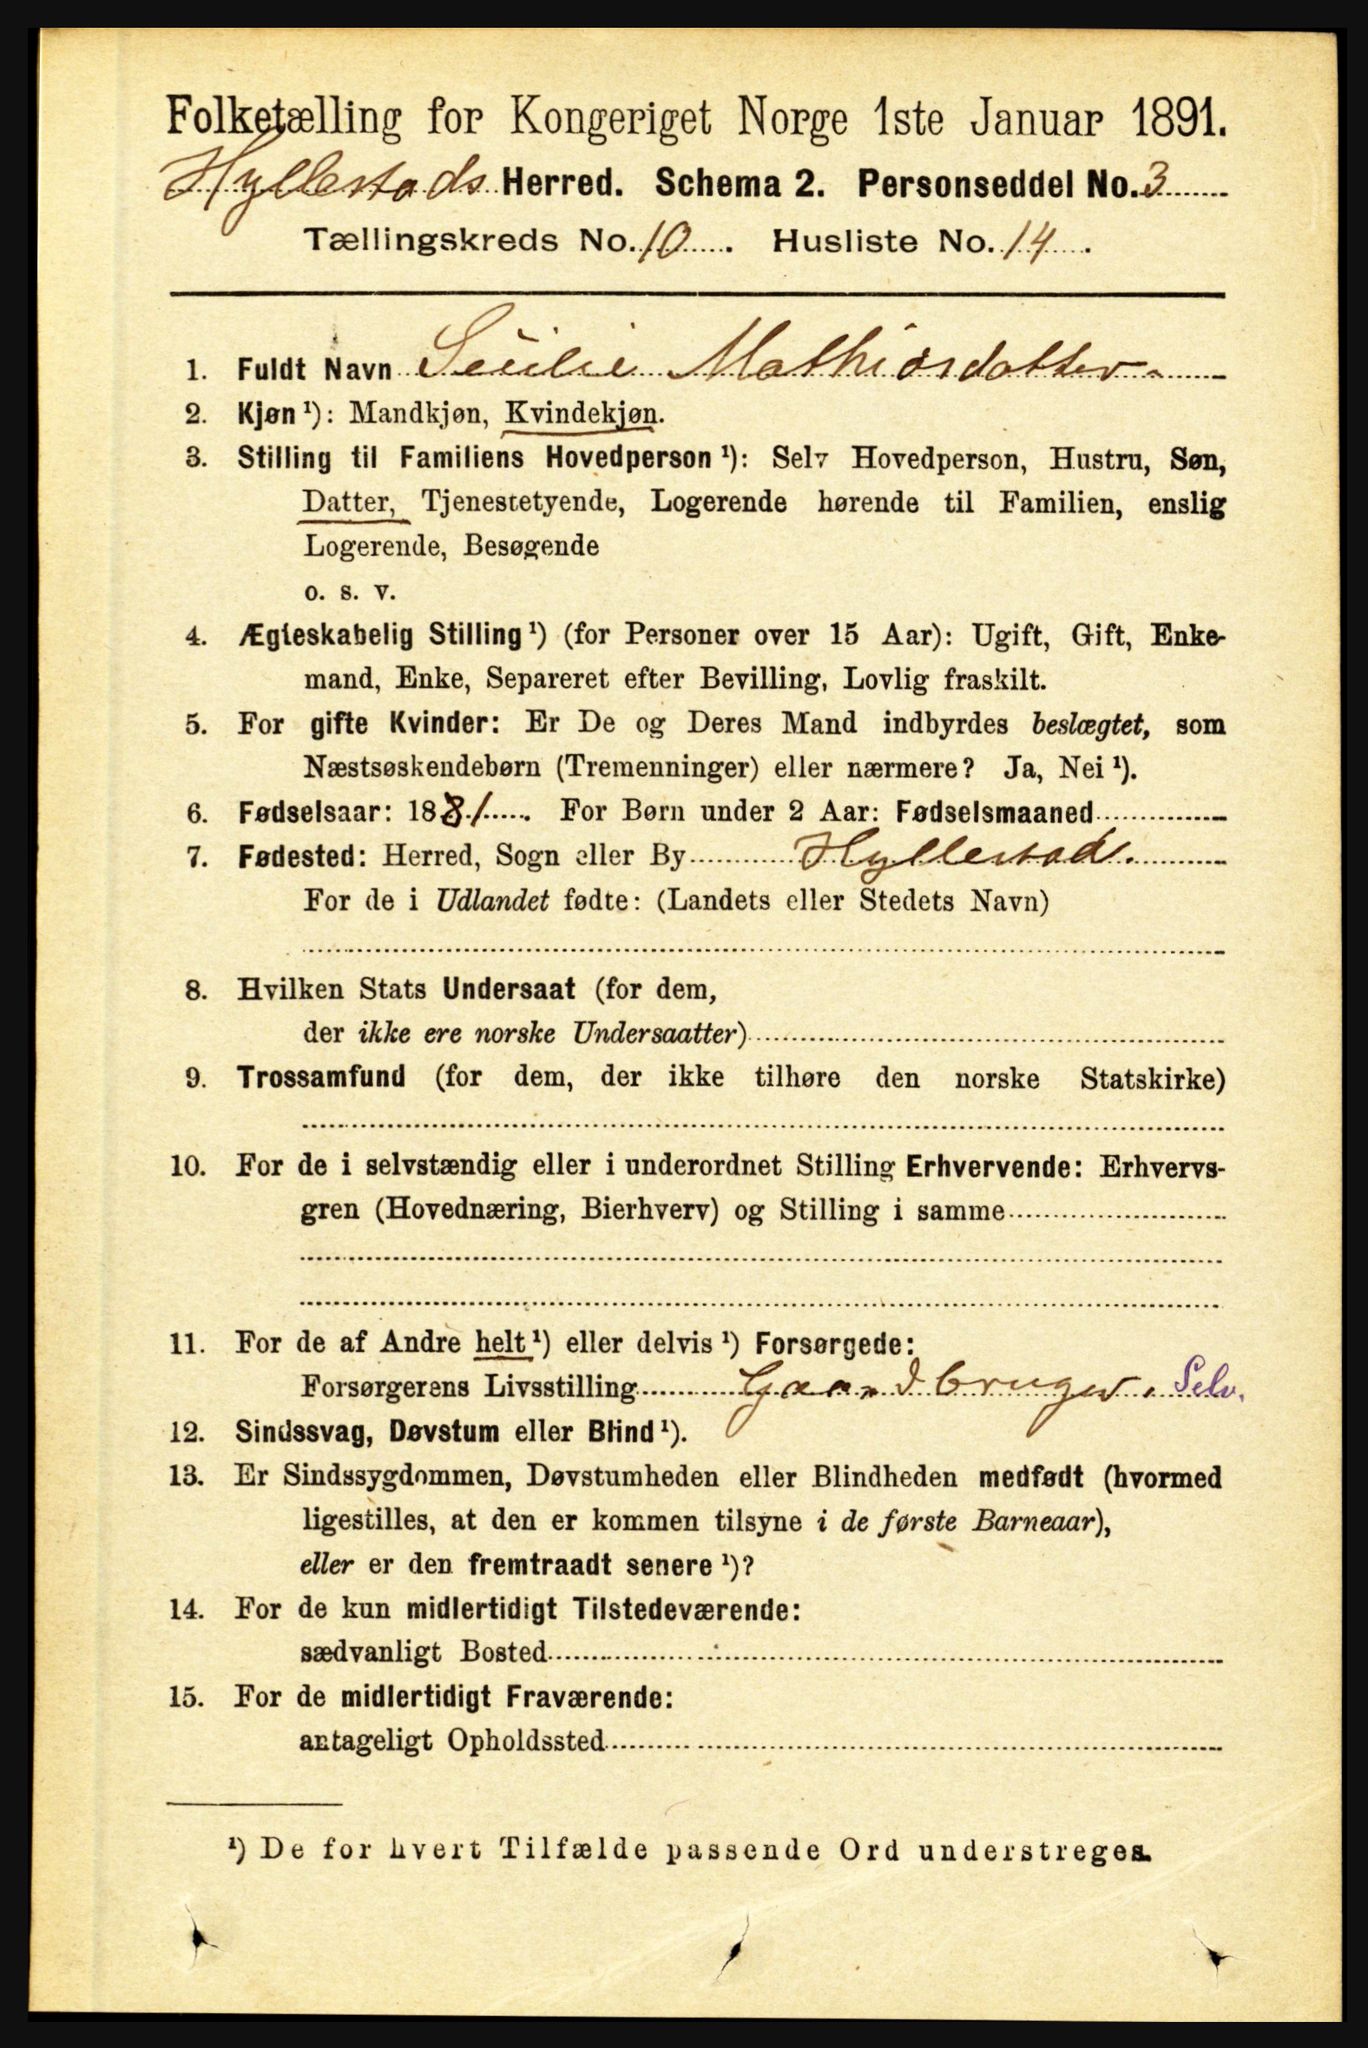 Folketælling for Kongeriget Norge 1ste Januar 1891.
Hyllestads Herred. Schema 2. Personseddel No. 3
Tællingskreds No. 10. Husliste No. 14.
1. Fuldt Navn Sesilie Mathiasdatter
2. Kjøn ¹): Mandkjøn, Kvindekjøn.
3. Stilling til Familiens Hovedperson ¹): Selv Hovedperson, Hustru, Søn,
Datter, Tjenestetyende, Logerende hørende til Familien, enslig
Logerende, Besøgende
o. s. v.
4. Ægteskabelig Stilling ¹) (for Personer over 15 Aar): Ugift, Gift, Enke-
mand, Enke, Separeret efter Bevilling, Lovlig fraskilt.
5. For gifte Kvinder: Er De og Deres Mand indbyrdes beslægtet, som
Næstsøskendebørn (Tremenninger) eller nærmere? Ja, Nei ¹).
6. Fødselsaar: 1881. For Børn under 2 Aar: Fødselsmaaned
7. Fødested: Herred, Sogn eller By Hyllestad.
For de i Udlandet fødte: (Landets eller Stedets Navn)
8. Hvilken Stats Undersaat (for dem,
der ikke ere norske Undersaatter)
9. Trossamfund (for dem, der ikke tilhøre den norske Statskirke)
10. For de i selvstændig eller i underordnet Stilling Erhvervende: Erhvervs-
gren (Hovednæring, Bierhverv) og Stilling i samme
11. For de af Andre helt ¹) eller delvis ¹) Forsørgede:
Forsørgerens Livsstilling Gaardbruger. Selv.
12. Sindssvag, Døvstum eller Blind ¹).
13. Er Sindssygdommen, Døvstumheden eller Blindheden medfødt (hvormed
ligestilles, at den er kommen tilsyne i de første Barneaar),
eller er den fremtraadt senere ¹)?
14. For de kun midlertidigt Tilstedeværende:
sædvanligt Bosted
15. For de midlertidigt Fraværende:
antageligt Opholdssted
¹) De for hvert Tilfælde passende Ord understreges.